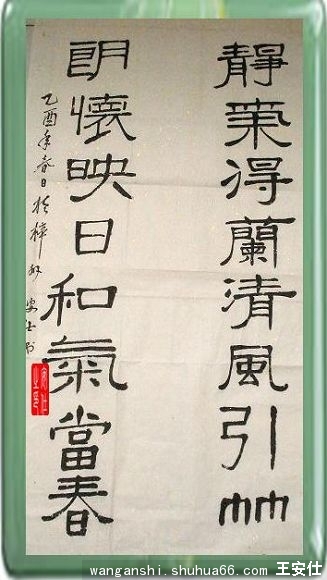 靜得蘭清風引竹
朗懷映日和氣當春
乙酉年春日於梓州 安仕书
wanganshi.shuhua66.com 王安仕